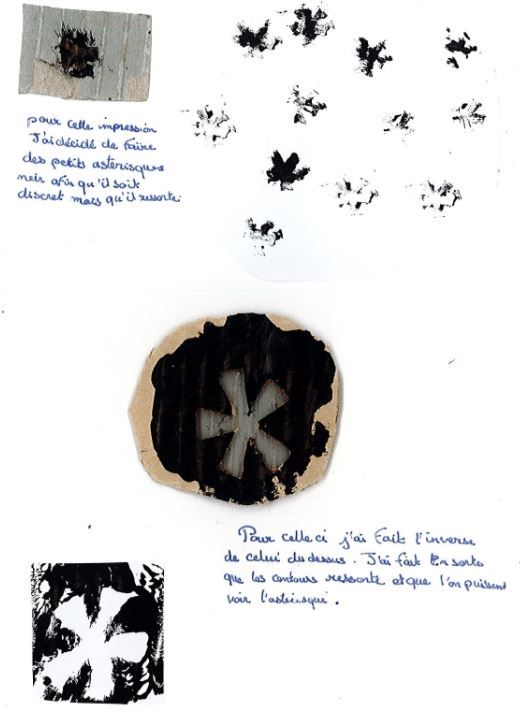 pour cette impression
J'ai décidé de faire
des petits astérisques
noir afin qu'il soit
discret mais qu'il ressorte.
Pour celle ci j'ai fait l'inverse
de celui du dessus. J'ai fait en sorte
que les contours ressorte et que l'on puissent
voir l'astérisque.